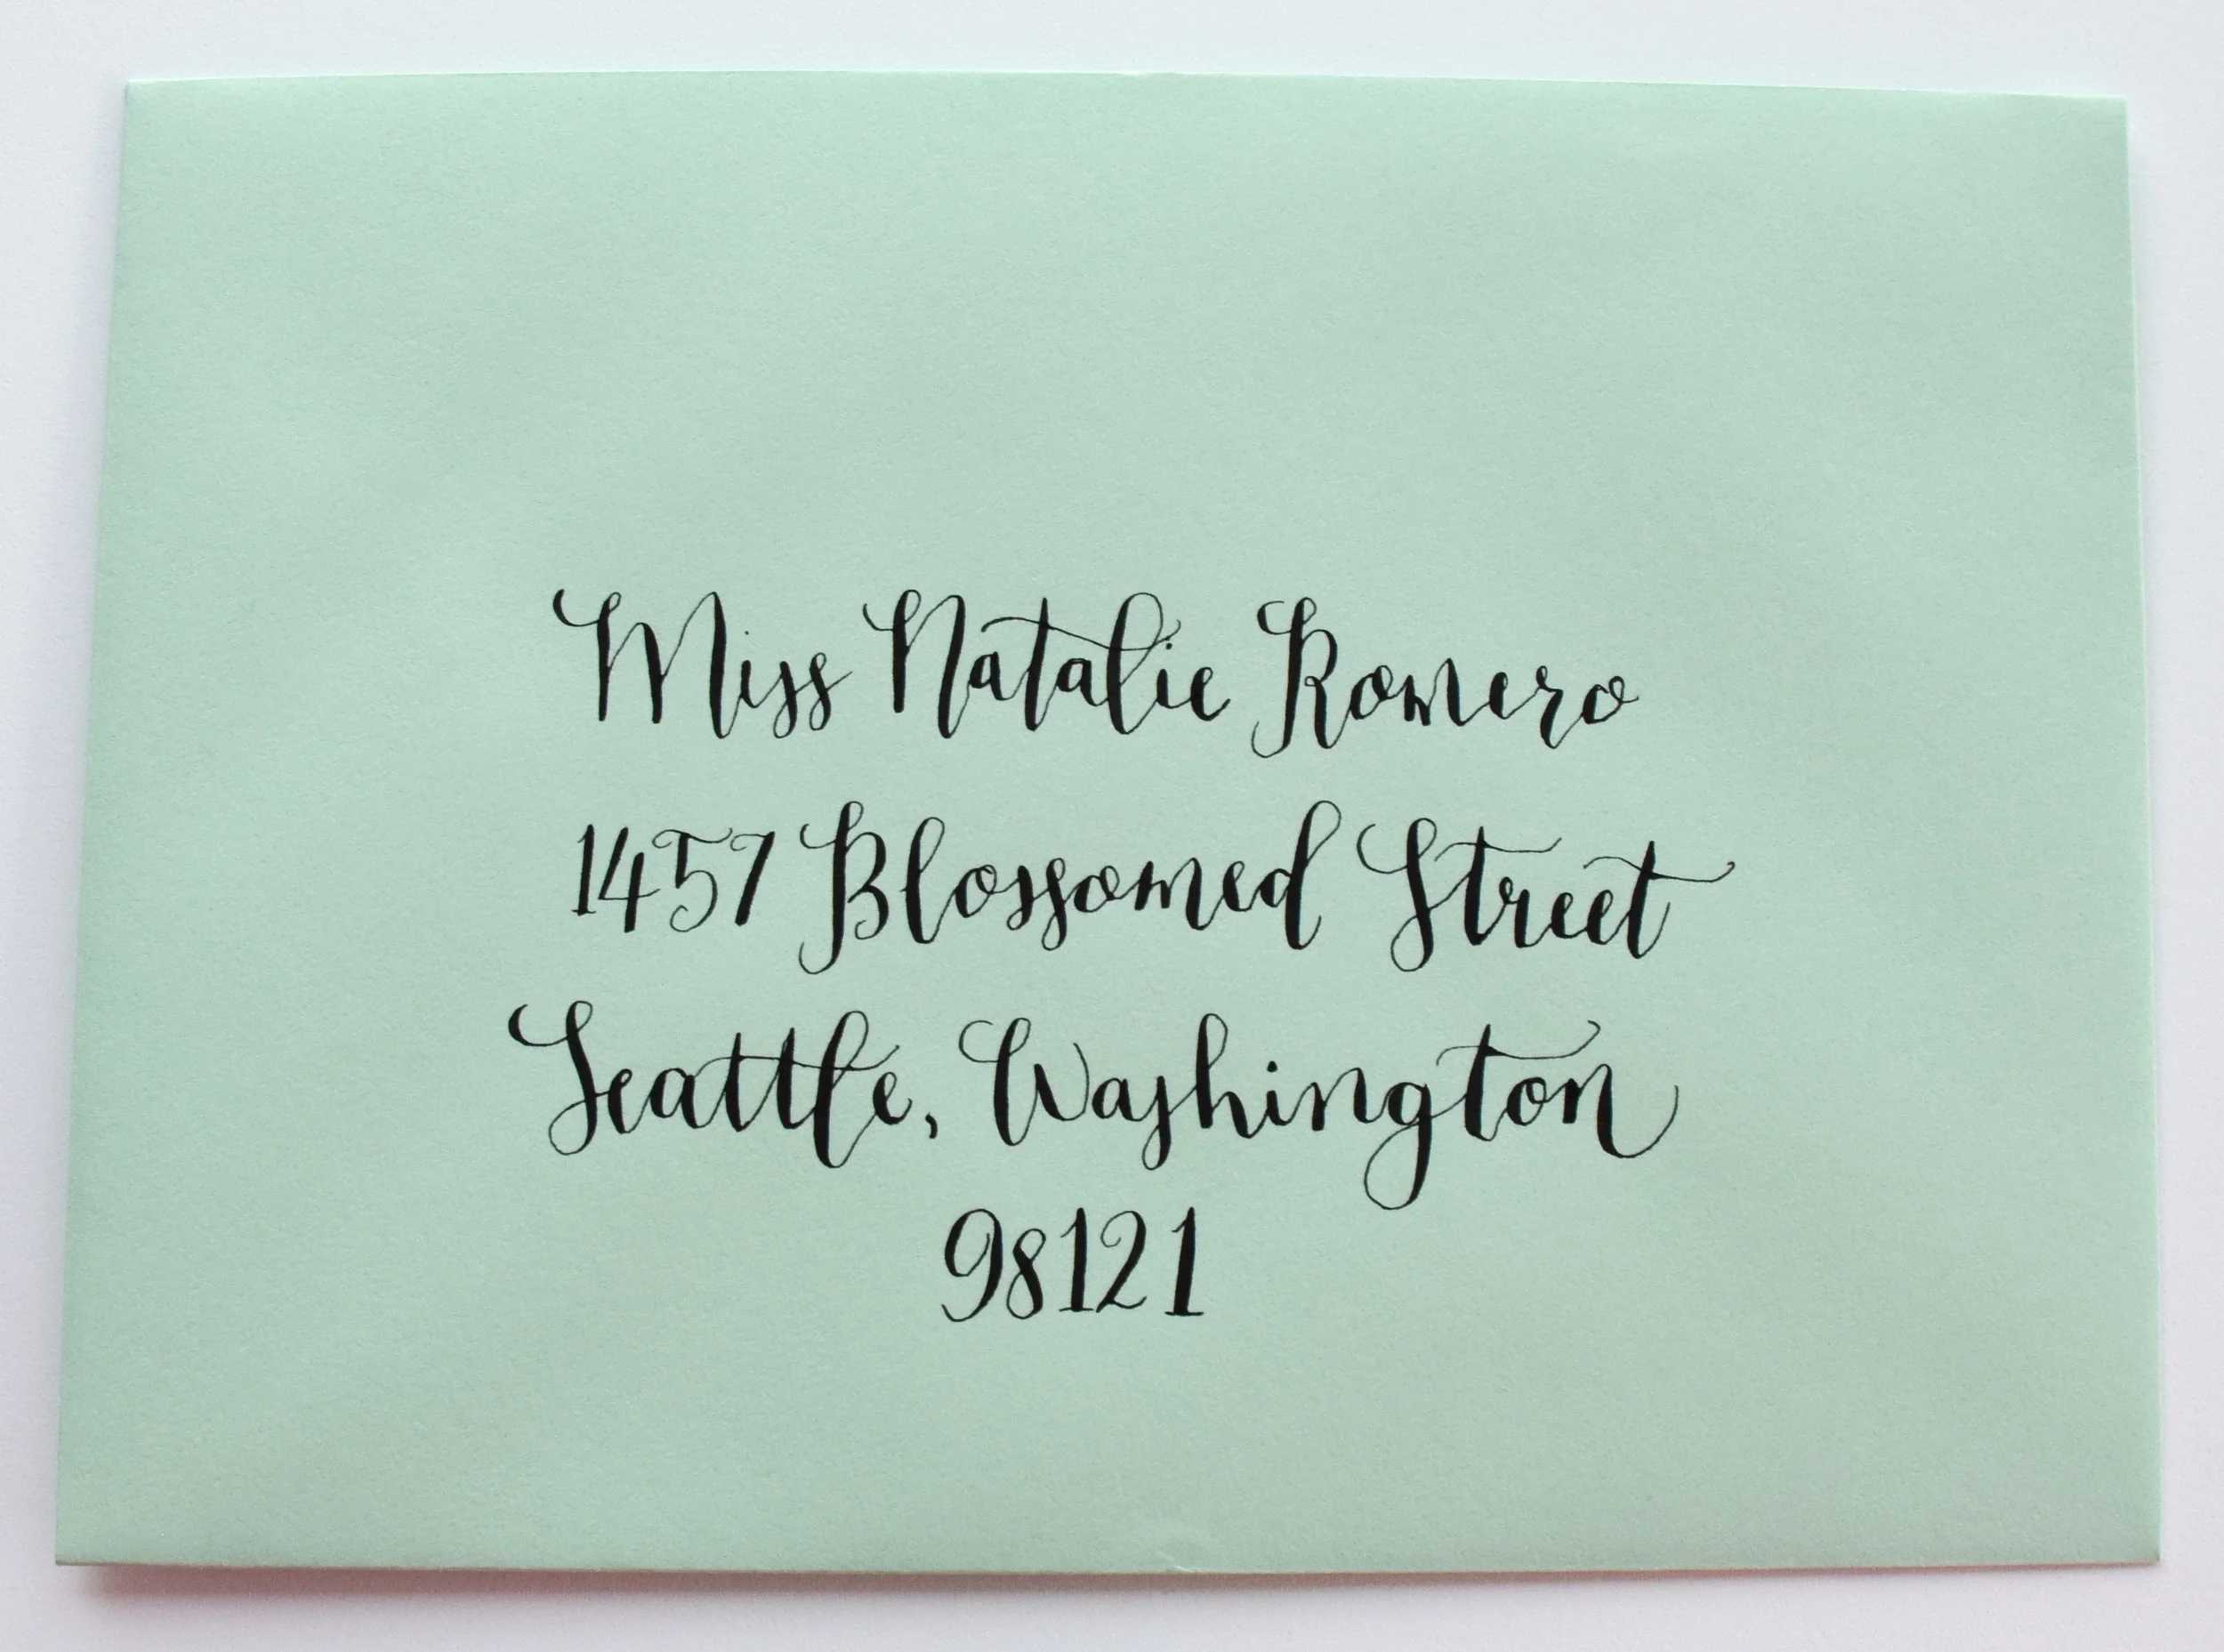 Miss Natalie Romero
1457 Blossomed Street
Seattle, Washington
98121